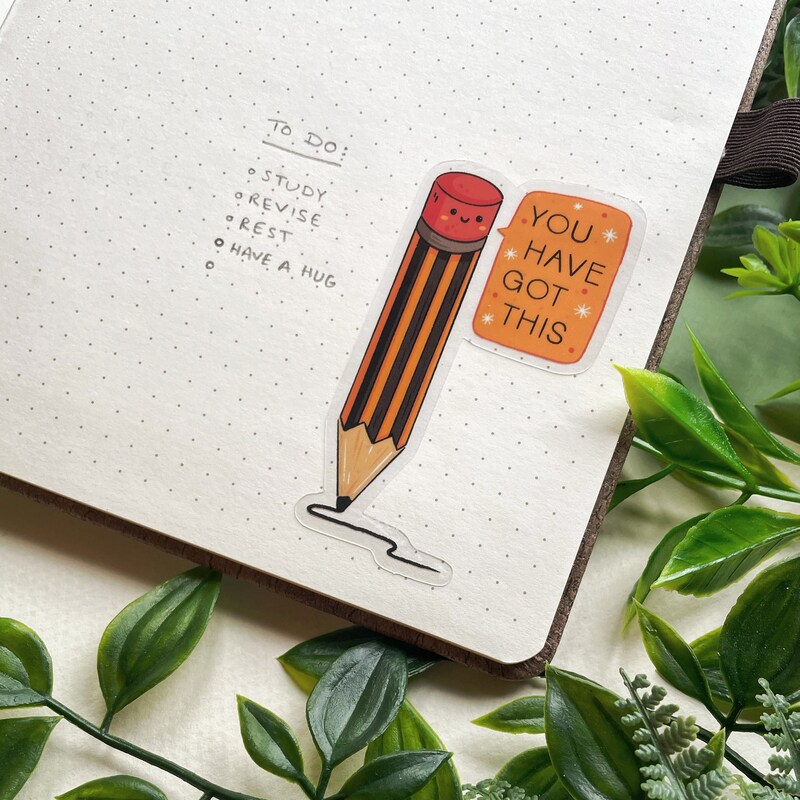 TO DO:
STUDY
REVISE
REST
HAVE A HUG
YOU
HAVE
GOT
THIS